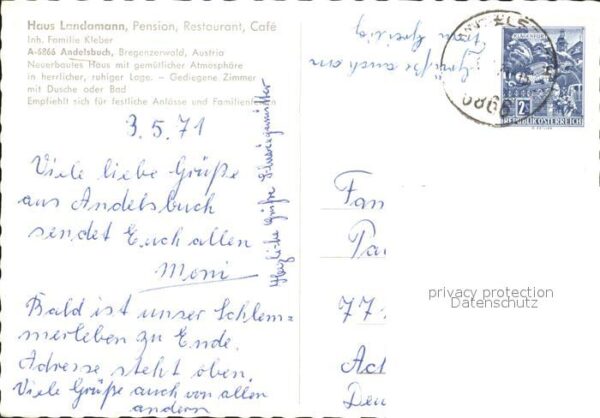 Haus Landamann, Pension, Restaurant, Café
Inh. Familie Kleber
A-6866 Andelsbuch, Bregenzerwald, Austria
Neuerbautes Haus mit gemütlicher Atmosphäre
in herrlicher, ruhiger Lage. – Gediegene Zimmer
mit Dusche oder Bad
Empfiehlt sich für festliche Anlässe und Familienfeiern
3.5.71
Viele liebe Grüße
aus Andelsbuch
sendet Euch allen
Moni
Bald ist unser Schlem=
merleben zu Ende.
Adresse steht oben.
Viele Grüße auch von allen
andern
Herzliche Grüße Schwiegermutter
Grüße auch an
6866
KLAGENFURT
2
REPUBLIK ÖSTERREICH
Fam
77
Deu
privacy protection
Datenschutz